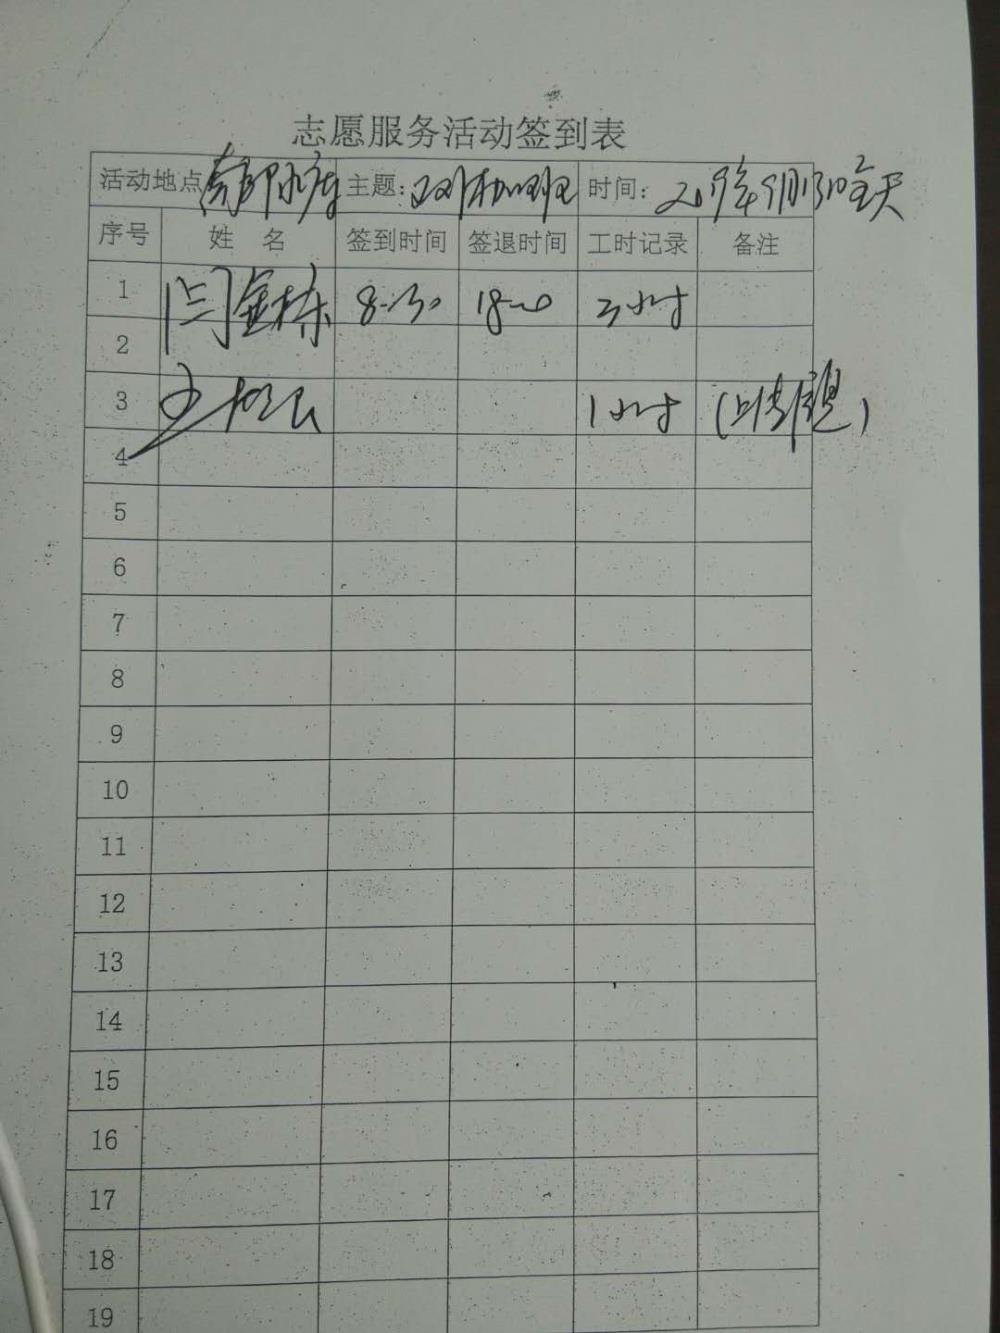 志愿服务活动签到表
活动地点 主题: 时间: 2019年9月13日全天
序号 姓名 签到时间 签退时间 工时记录 备注
1 闫金栋 8:30 18:00 3小时
2
3 1小时
4
5
6
7
8
9
10
11
12
13
14
15
16
17
18
19